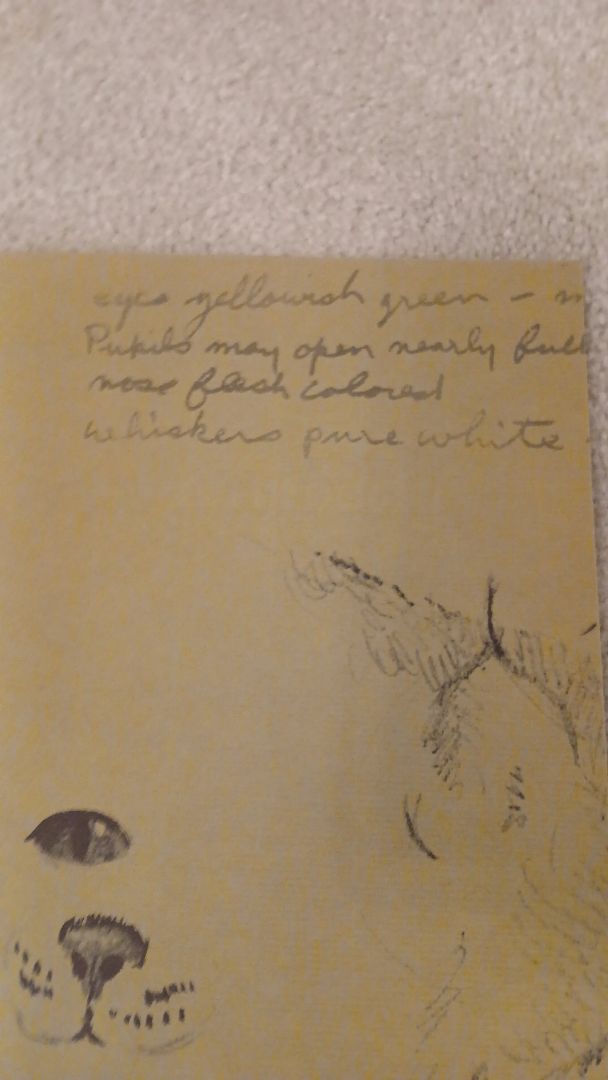 eyes yellowish green –
Pupils may open nearly full
nose flesh colored
whiskers pure white